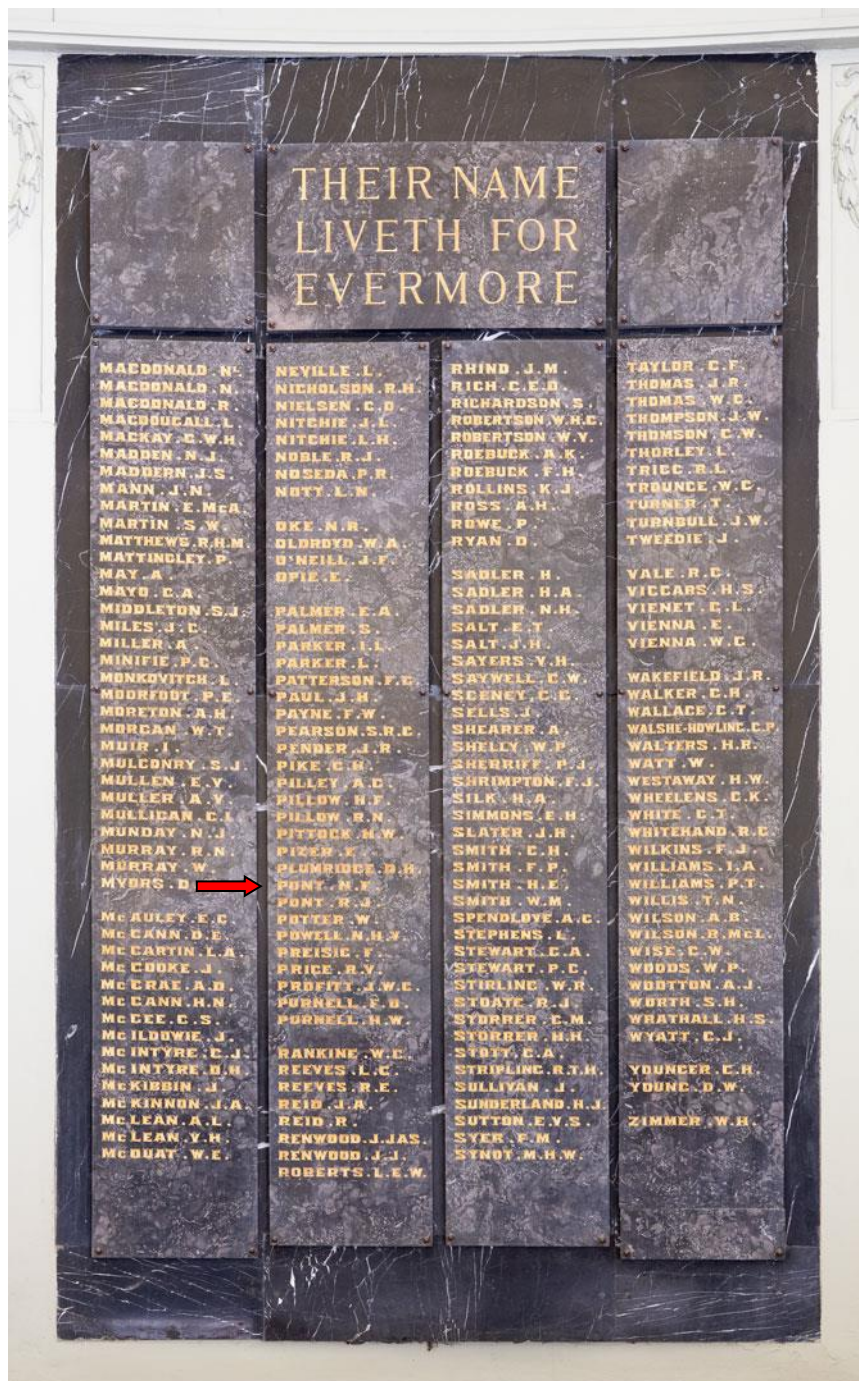 THEIR NAME
LIVETH FOR
EVERMORE
MACDONALD. N.
MACDONALD. N.
MACDONALD. R.
MACDOUGALL. L.
MACKAY. G.W.H.
MADDEN. N.J.
MADDERN. J.S.
MANN. J.N.
MARTIN. E.McA.
MARTIN. S.W.
MATTHEWS. R.H.M.
MATTINGLEY. P.
MAY. A.
MAYO. C.A.
MIDDLETON. S.J.
MILES. J.C.
MILLER. A.
MINIFIE. P.C.
MONKOVITCH. L.
MOORFOOT. P.E.
MORETON. A.H.
MORGAN. W.T.
MUIR. I.
MULCONRY. S.J.
MULLEN. E.V.
MULLER. A.V.
MULLIGAN. C.L.
MUNDAY. N.J.
MURRAY. R.N.
MURRAY. W.
MYORS. D.
McAULEY. E.C.
McCANN. D.E.
McCARTIN. L.A.
McCOOKE. J.
McCRAE. A.D.
McCANN. H.N.
McGEE. C.S.
McILDOWIE. J.
McINTYRE. C.J.
McINTYRE. D.H.
McKIBBIN. J.
McKINNON. J.A.
McLEAN. A.L.
McLEAN. V.H.
McQUAT. W.E.
NEVILLE. L.
NICHOLSON. R.H.
NIELSEN. C.D.
NITCHIE. J.L.
NITCHIE. L.H.
NOBLE. R.J.
NOSEDA. P.R.
NOTT. L.N.
OKE. N.R.
OLDROYD. W.A.
O'NEILL. J.F.
OPIE. E.
PALMER. E.A.
PALMER. S.
PARKER. I.L.
PARKER. L.
PATTERSON. F.G.
PAUL. J.H.
PAYNE. F.W.
PEARSON. S.R.C.
PENDER. J.R.
PIKE. C.H.
PILLEY. A.C.
PILLOW. H.F.
PILLOW. R.N.
PITTOCK. H.W.
PIZER. E.
PLUMRIDGE. D.H.
PONT. N.F.
PONT. R.J.
POTTER. W.
POWELL. N.H.V.
PREISIG. F.
PRICE. R.V.
PROFITT. J.W.C.
PURNELL. F.D.
PURNELL. H.W.
RANKINE. W.C.
REEVES. L.C.
REEVES. R.E.
REID. J.A.
REID. R.
RENWOOD. J.JAS.
RENWOOD. J.J.
ROBERTS. L.E.W.
RHIND. J.M.
RICH. C.E.D.
RICHARDSON. S.
ROBERTSON. W.H.C.
ROBERTSON. W.Y.
ROEBUCK. A.K.
ROEBUCK. F.H.
ROLLINS. K.J.
ROSS. A.H.
ROWE. P.
RYAN. D.
SADLER. H.
SADLER. H.A.
SADLER. N.H.
SALT. E.T.
SALT. J.H.
SAYERS. V.H.
SAYWELL. C.W.
SCENEY. C.C.
SELLS. J.
SHEARER. A.
SHELLY. W.P.
SHERRIFF. P.J.
SHRIMPTON. F.J.
SILK. H.A.
SIMMONS. E.H.
SLATER. J.H.
SMITH. C.H.
SMITH. F.P.
SMITH. H.E.
SMITH. W.M.
SPENDLOVE. A.G.
STEPHENS. L.
STEWART. G.A.
STEWART. P.C.
STIRLING. W.R.
STOATE. R.J.
STORRER. C.M.
STORRER. H.H.
STOTT. C.A.
STRIPLING. R.T.H.
SULLIVAN. J.
SUNDERLAND. H.J.
SUTTON. E.V.S.
SYER. F.M.
SYNOT. M.H.W.
TAYLOR. C.F.
THOMAS. J.R.
THOMAS. W.C.
THOMPSON. J.W.
THOMSON. C.W.
THORLEY. L.
TRIGG. R.L.
TROUNCE. W.C.
TURNER. T.
TURNBULL. J.W.
TWEEDIE. J.
VALE. R.C.
VICCARS. H.S.
VIENET. C.L.
VIENNA. E.
VIENNA. W.C.
WAKEFIELD. J.R.
WALKER. C.H.
WALLACE. C.T.
WALSHE-HOWLING. C.P.
WALTERS. H.R.
WATT. W.
WESTAWAY. H.W.
WHEELENS. C.K.
WHITE. C.T.
WHITEHAND. R.C.
WILKINS. F.J.
WILLIAMS. I.A.
WILLIAMS. P.T.
WILLIS. T.N.
WILSON. A.B.
WILSON. R.McL.
WISE. C.W.
WOODS. W.P.
WOOTTON. A.J.
WORTH. S.H.
WRATHALL. H.S.
WYATT. C.J.
YOUNGER. C.H.
YOUNG. D.W.
ZIMMER. W.H.